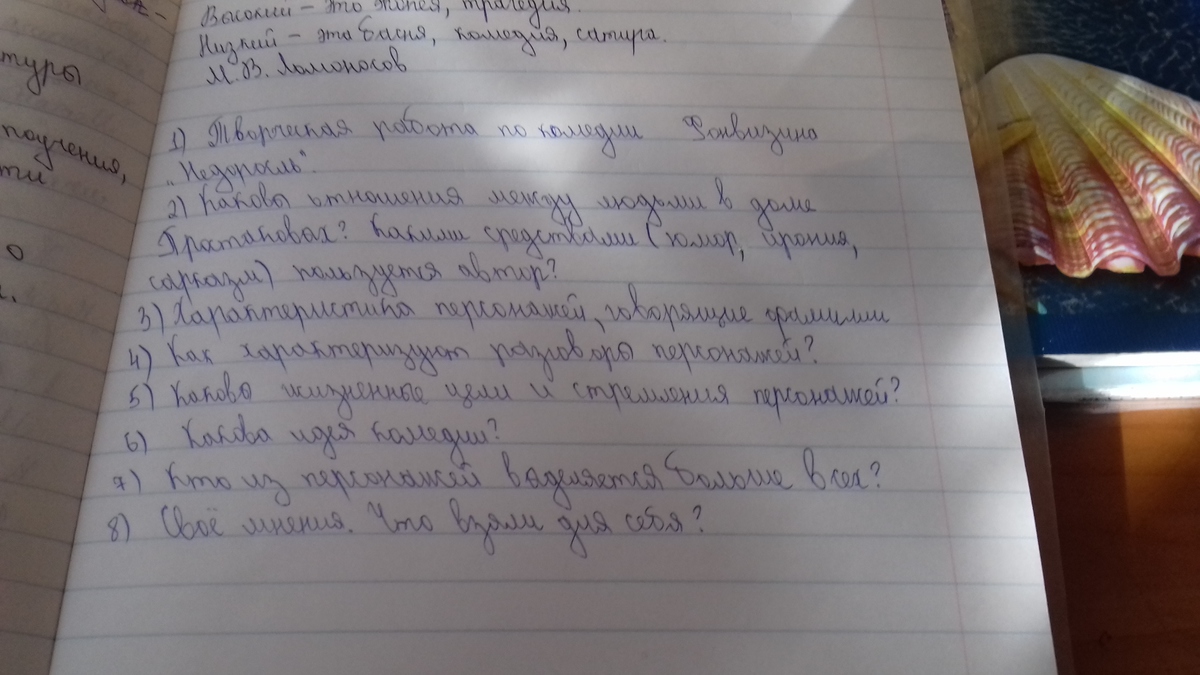 Высокий – это эпопея, трагедия.
Низкий – это басня, комедия, сатира.
М.В. Ломоносов
туры
поучения,
ти
о
1) Творческая работа по комедии Фонвизина
"Недоросль".
2) Каковы отношения между людьми в доме
Простаковой? Какими средствами (юмор, ирония,
сарказм) пользуется автор?
3) Характеристика персонажей, говорящие фамилии
4) Как характеризуют разговоры персонажей?
5) Каковы жизненные цели и стремления персонажей?
6) Какова идея комедии?
7) Кто из персонажей выделяется больше всех?
8) Своё мнения. Что взяли для себя?